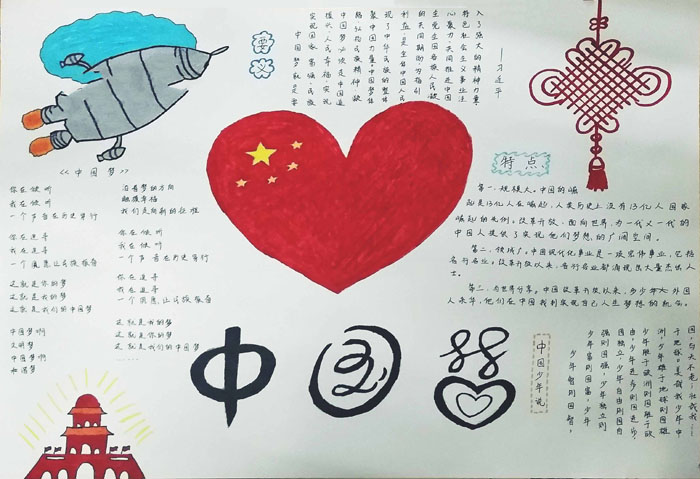 要义
中国梦就是要
实现国家富强、民族
振兴、人民幸福。实现
中国梦必须走中国道
路、弘扬民族精神、凝
聚中国力量。中国梦体
现了中华民族的整体
利益,是全体中国人民
的共同期盼,为指引
全党全国各族人民凝
心聚力共同推进中国
特色社会主义事业注
入了强大的精神力量
——习近平
《中国梦》
你在倾听
我在倾听
一个声音在历史穿行
你在追寻
我在追寻
一个愿景让民族振奋
这就是你的梦
这就是我的梦
这是我们的中国梦
中国梦啊
文明梦
中国梦啊
和谐梦
沿着梦的方向
触摸幸福
我们走向新的征程
你在倾听
我在倾听
一个声音在历史穿行
你在追寻
我在追寻
一个愿景让民族振奋
这就是我的梦
这就是你的梦
这就是我们的中国梦
……
特点
第一,规模大。中国的崛
起是13亿人在崛起,人类历史上没有13亿人国家
崛起的先例。改革开放、面向世界,为一代又一代的
中国人提供了实现他们梦想的广阔空间。
第二,领域广。中国现代化事业是一项宏伟事业,它括
各行各业。改革开放以来,各行各业都涌现出大量杰出人
士。
第二,与世界分享。中国改革开放以来,多少年外国
人来华,他们在中国找到实现自己人生梦想的机会。
中国梦
中国少年说
少年智则国智,
少年富则国富,少年
强则国强,少年独立则
国独立,少年自由则国自
由,少年进步则国进步,
少年胜于欧洲则国胜于欧
洲,少年雄于地球则国雄
于地球。美哉我少年中
国,与天不老!壮哉我……